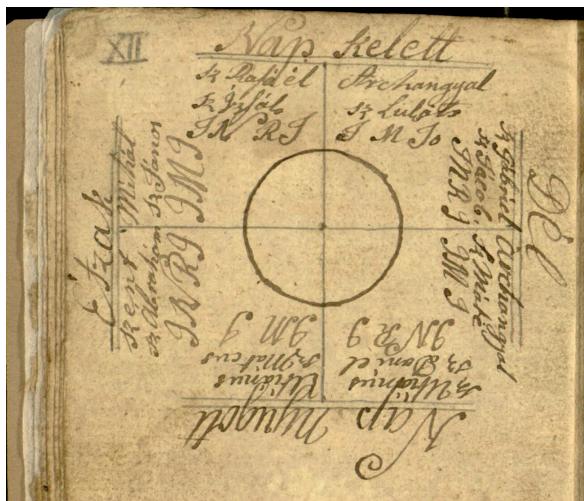 XII
Nap kelett
Sz Rafaél Archangyal
Sz Isák Sz Lukáts
I N R I I M I
Dél
Sz Gábriel Archangyal
Sz Jacob, Sz Márk
I N R I I M I
Nap nyugott
Sz Uriánus Uriánus
Sz Daniel Sz Mateus
I N R I I M I
Észak
Szent Mihál
Sz Abrahám Sz János
I N R I I M I